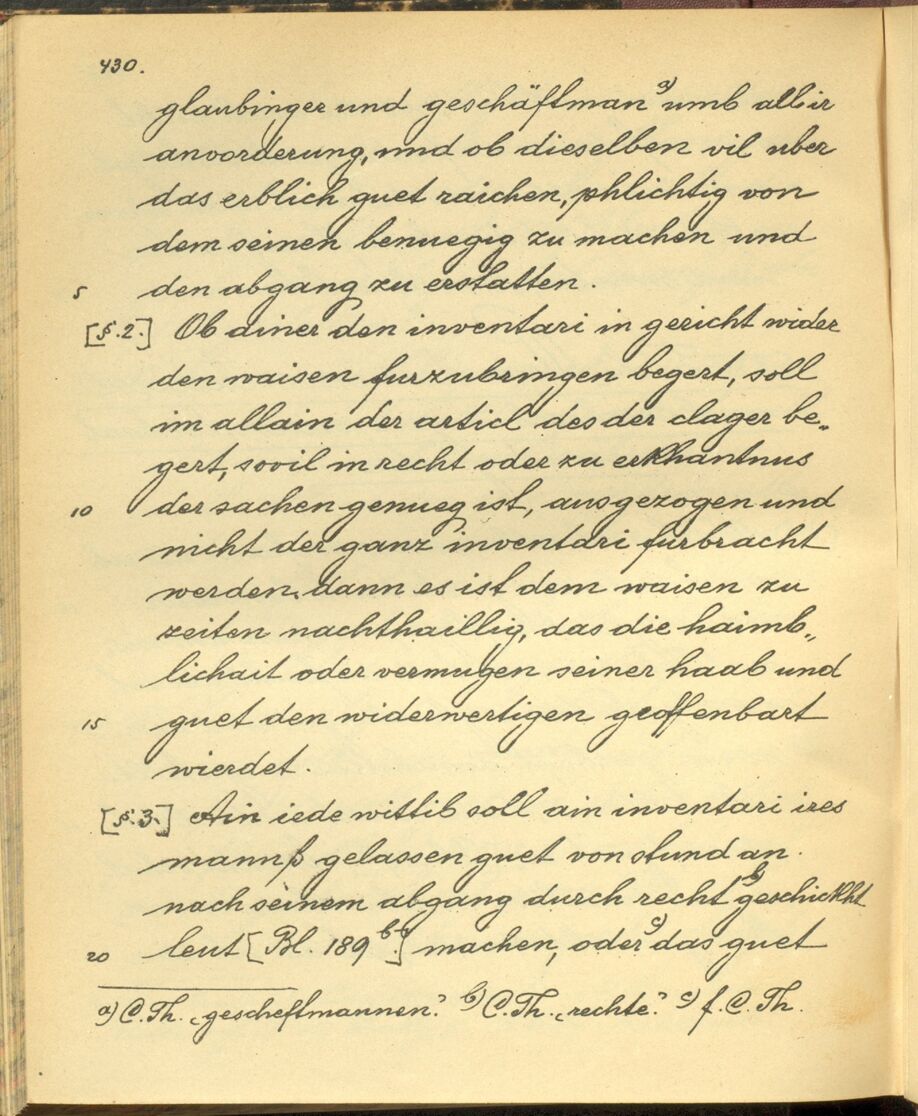 430.
glaubinger und geschäftman a) umb all ir
anvorderung, und ob dieselben vil uber
das erblich guet raichen, phlichtig von
dem seinen benuegig zu machen und
5 den abgang zu erstatten.
[§.2.] Ob ainer den inventari in gericht wider
den waisen furzubringen begert, soll
im allain der articl des der clager be„
gert, sovil in recht oder zu erkhantnus
10 der sachen genueg ist, ausgezogen und
nicht der ganz inventari furbracht
werden, dann es ist dem waisen zu
zeiten nachthaillig, das die haimb„
lichait oder vermugen seiner haab und
15 guet den widerwertigen geoffenbart
wierdet.
[§.3.] Ain iede wittib soll ain inventari ires
mannß gelassen guet von stund an
nach seinem abgang durch recht b) geschickht
20 leut [Bl. 189 b.] machen, oder c) das guet
a) C. Th. „gescheftmannen." b) C. Th. „rechte." c) f. C. Th.